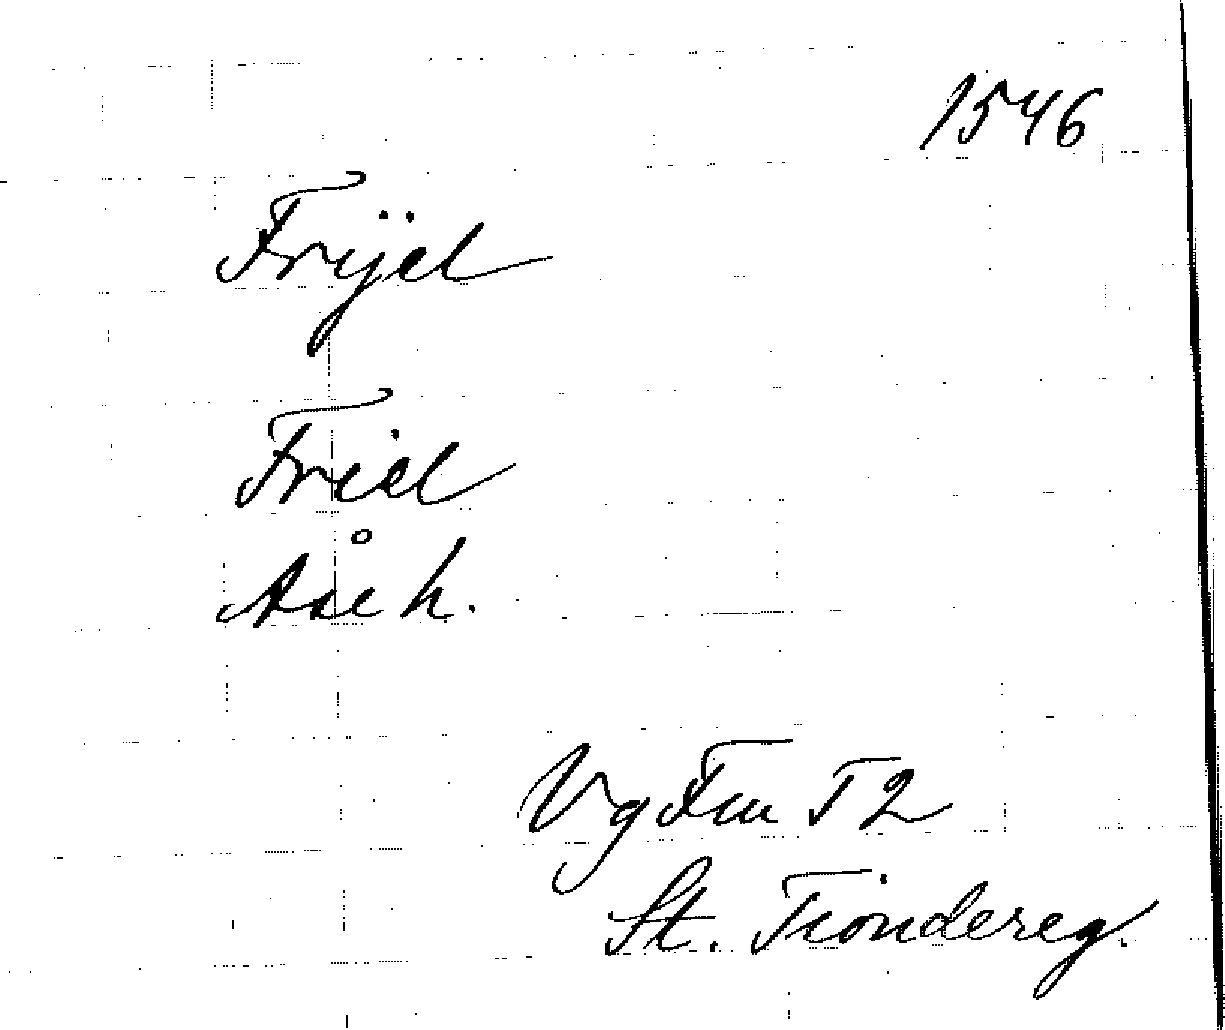 1546
Frÿel
Friel
Åse h.
VgFm T2
St. Tiondereg.